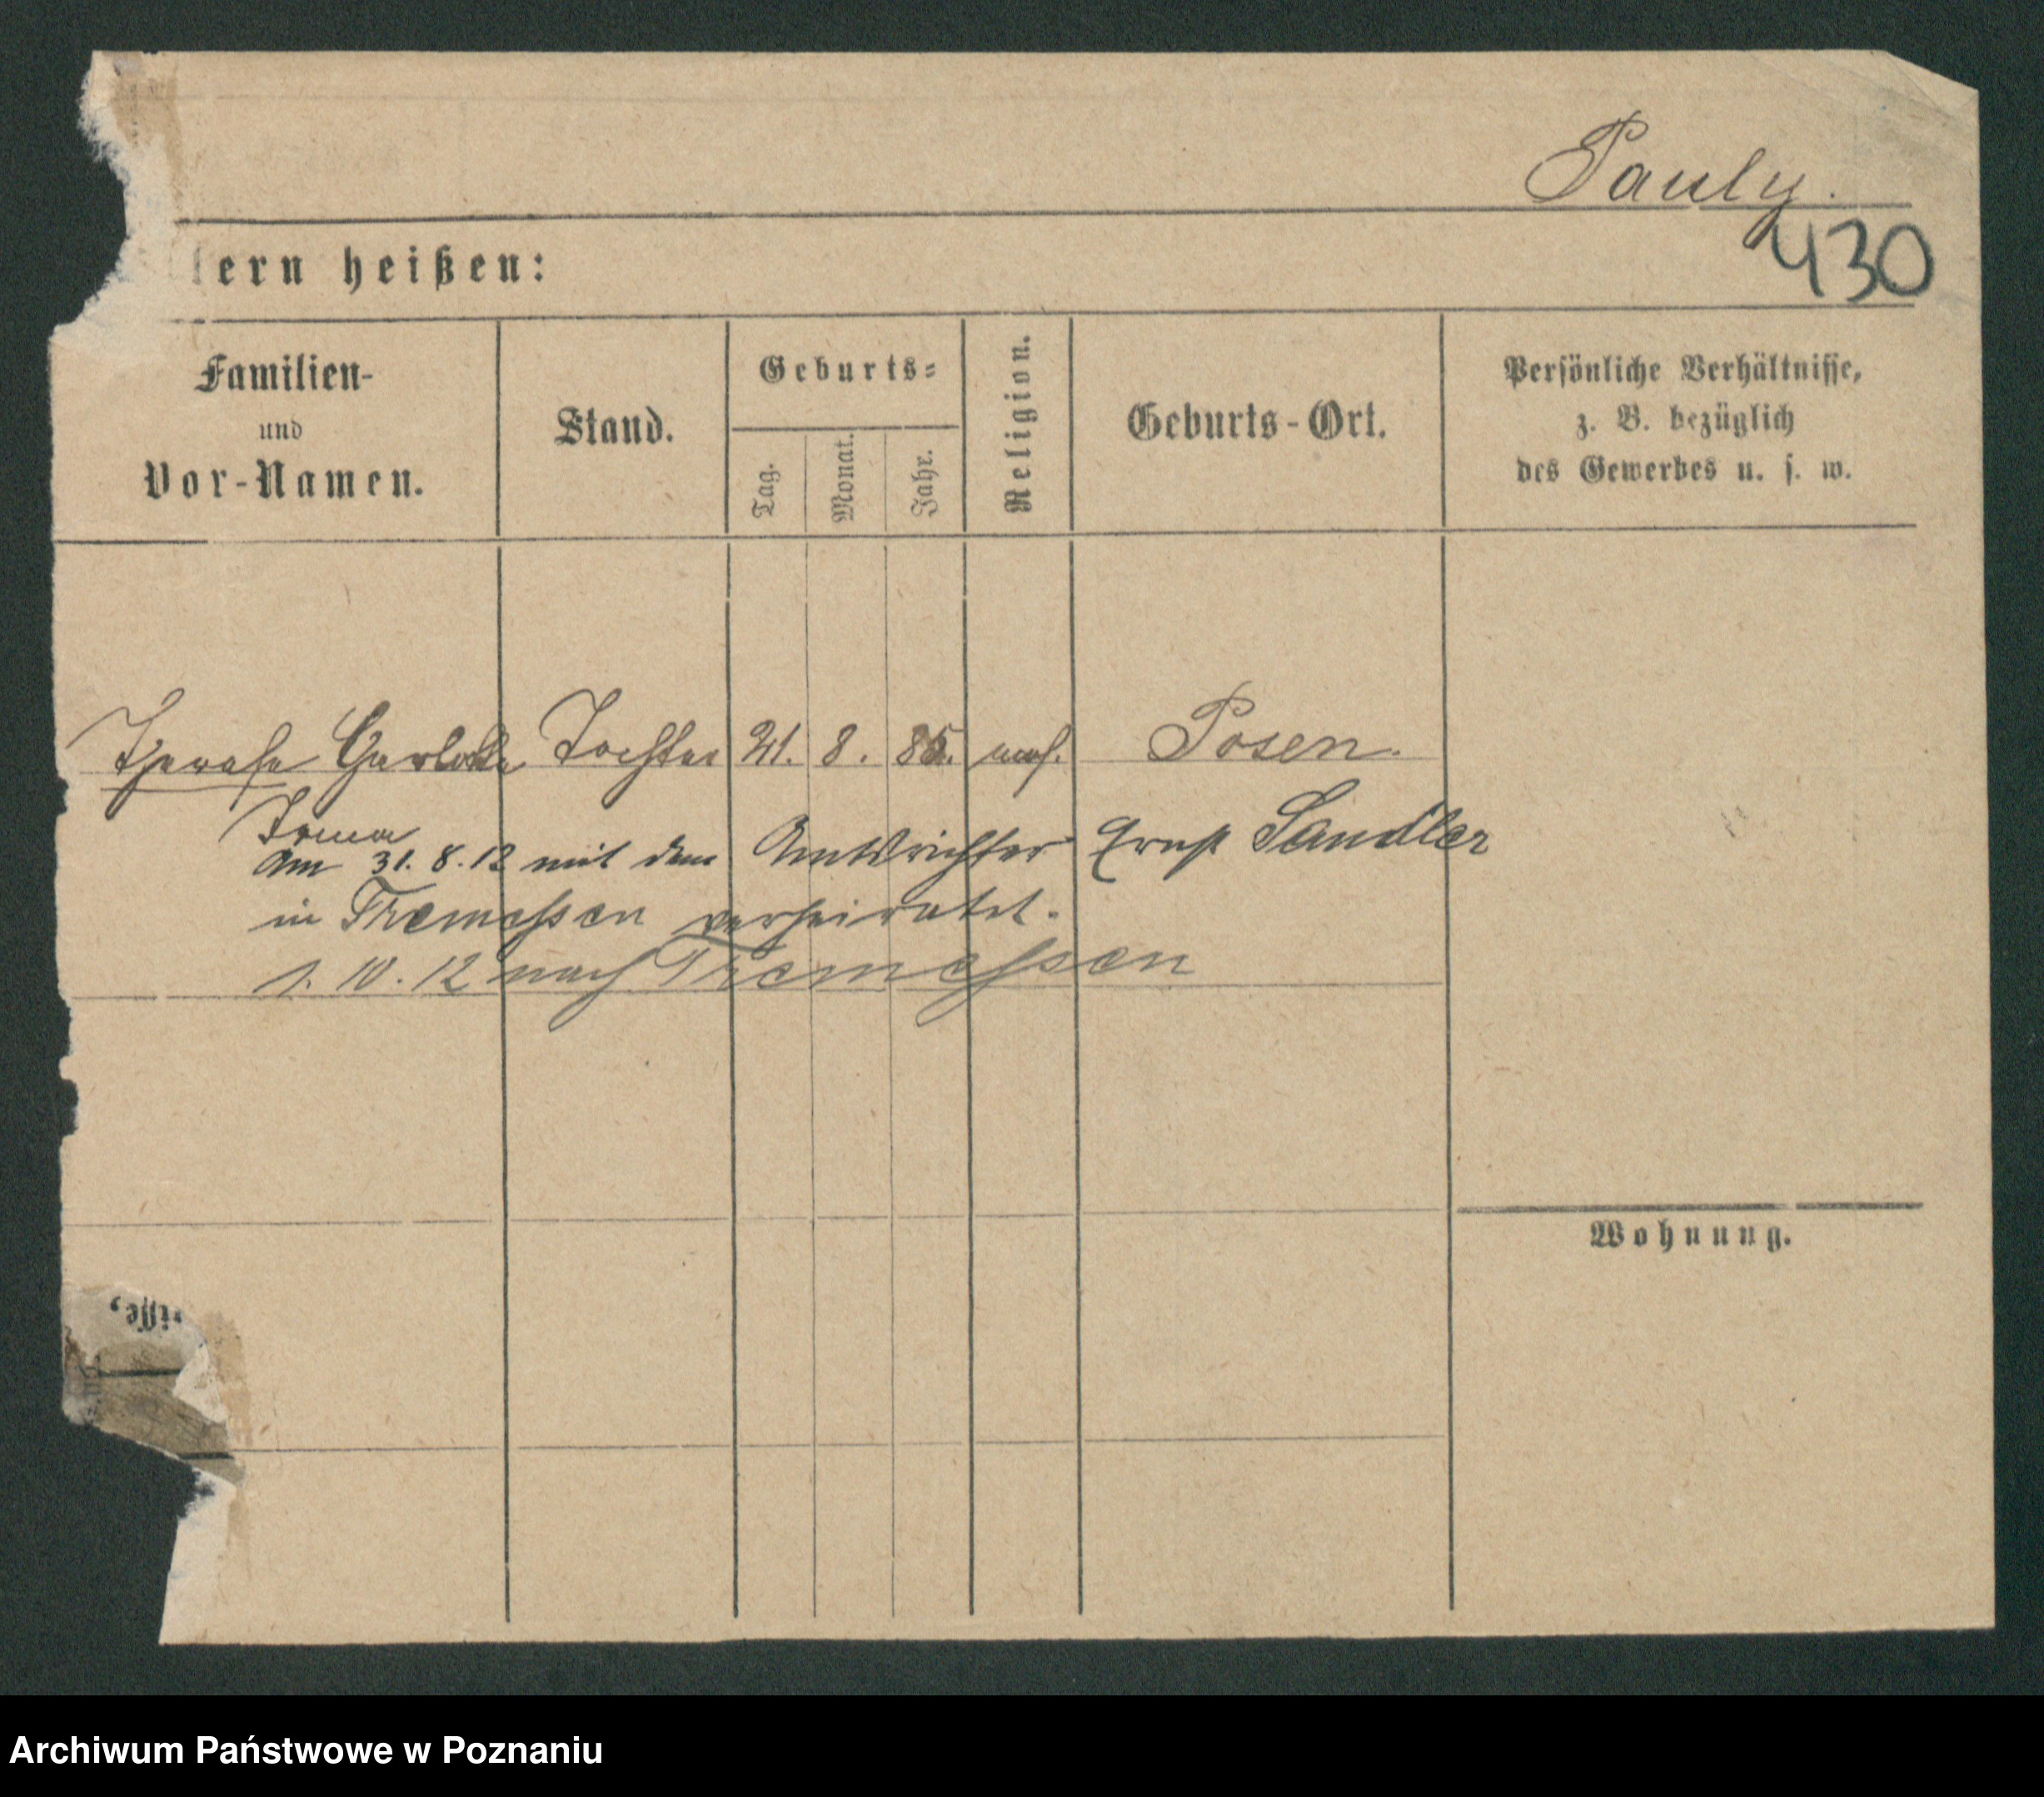 Pauly.
430
ern heißen:
Familien-
und
Vor-Namen.
Stand.
Geburts-
Tag.
Monat.
Jahr.
Religion.
Geburts-Ort.
Persönliche Verhältnisse,
z. B. bezüglich
des Gewerbes u. s. w.
Therese Charlotte Tochter 21. 8. 85. mos. Posen.
Irma
Am 31. 8. 12 mit dem Amtsrichter Ernst Sandler
in Tremessen verheiratet.
1. 10. 12 nach Tremessen
Wohnung.
isse,
Archiwum Państwowe w Poznaniu